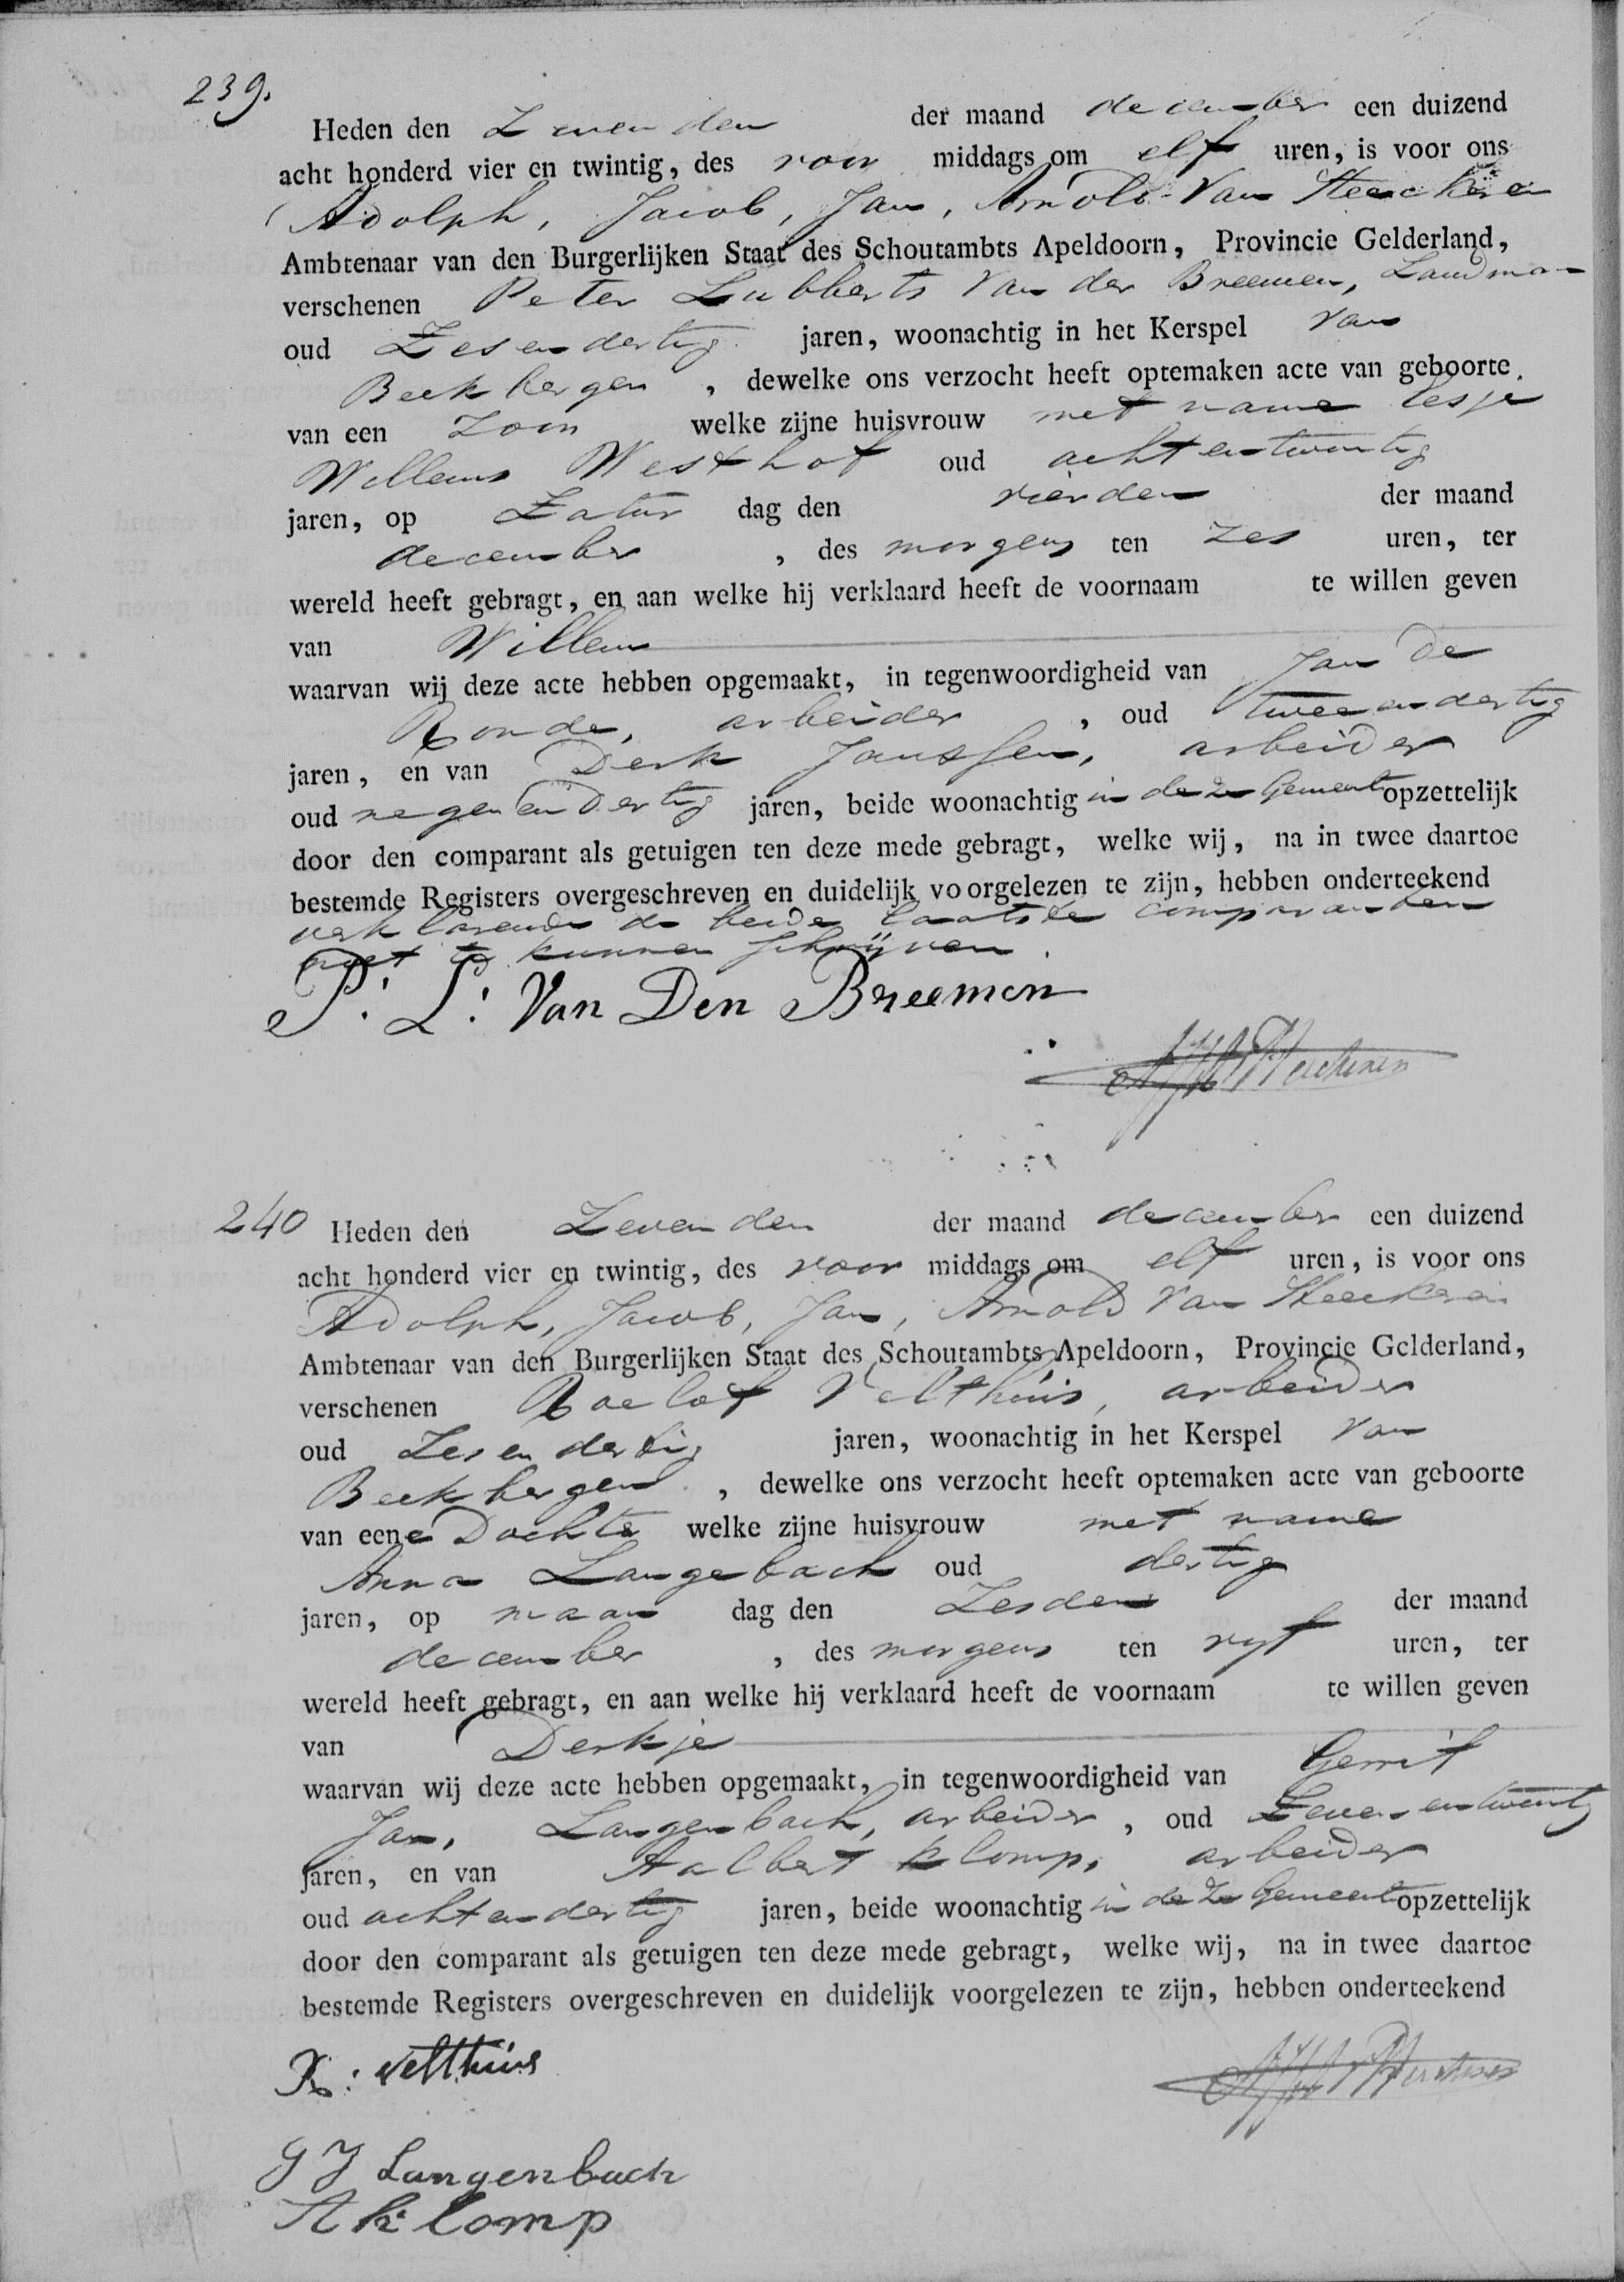 239.
Heden den Zevenden der maand december een duizend
acht honderd vier en twintig, des voor middags om elf uren, is voor ons
Adolph, Jacob, Jan, Arnold Van Heeckeren
Ambtenaar van den Burgerlijken Staat des Schoutambts Apeldoorn, Provincie Gelderland,
verschenen Peter Lubberts Van der Breemen, Landman
oud Zesendertig jaren, woonachtig in het Kerspel van
Beekbergen, dewelke ons verzocht heeft optemaken acte van geboorte
van een Zoon welke zijne huisvrouw met name Lesje
Willems Westhof oud achtentwintig
jaren, op Zatur dag den vierden der maand
december, des morgens ten zes uren, ter
wereld heeft gebragt, en aan welke hij verklaard heeft de voornaam te willen geven
van Willem
waarvan wij deze acte hebben opgemaakt, in tegenwoordigheid van Jan De
Ronde, arbeider, oud tweeendertig
jaren, en van Derk Janssen, arbeider
oud negenendertig jaren, beide woonachtig in deze Gemeente opzettelijk
door den comparant als getuigen ten deze mede gebragt, welke wij, na in twee daartoe
bestemde Registers overgeschreven en duidelijk voorgelezen te zijn, hebben onderteekend
verklarende de beide laatste comparanten
niet te kunnen schrijven
P: L: Van Den Breemen
240
Heden den Zevenden der maand december een duizend
acht honderd vier en twintig, des voor middags om elf uren, is voor ons
Adolph, Jacob, Jan, Arnold Van Heeckeren
Ambtenaar van den Burgerlijken Staat des Schoutambts Apeldoorn, Provincie Gelderland,
verschenen Roelof Velthuis, arbeider
oud Zesendertig jaren, woonachtig in het Kerspel van
Beekbergen, dewelke ons verzocht heeft optemaken acte van geboorte
van eene Dochter welke zijne huisvrouw met name
Anna Langebach oud dertig
jaren, op maan dag den Zesden der maand
december, des morgens ten vyf uren, ter
wereld heeft gebragt, en aan welke hij verklaard heeft de voornaam te willen geven
van Derkje
waarvan wij deze acte hebben opgemaakt, in tegenwoordigheid van Gerrit
Jan, Langenbach, arbeider, oud Zevenentwintig
jaren, en van Aalbert Klomp, arbeider
oud achtendertig jaren, beide woonachtig in deze Gemeente opzettelijk
door den comparant als getuigen ten deze mede gebragt, welke wij, na in twee daartoe
bestemde Registers overgeschreven en duidelijk voorgelezen te zijn, hebben onderteekend
R: Velthuis
G J Langenbach
A Klomp